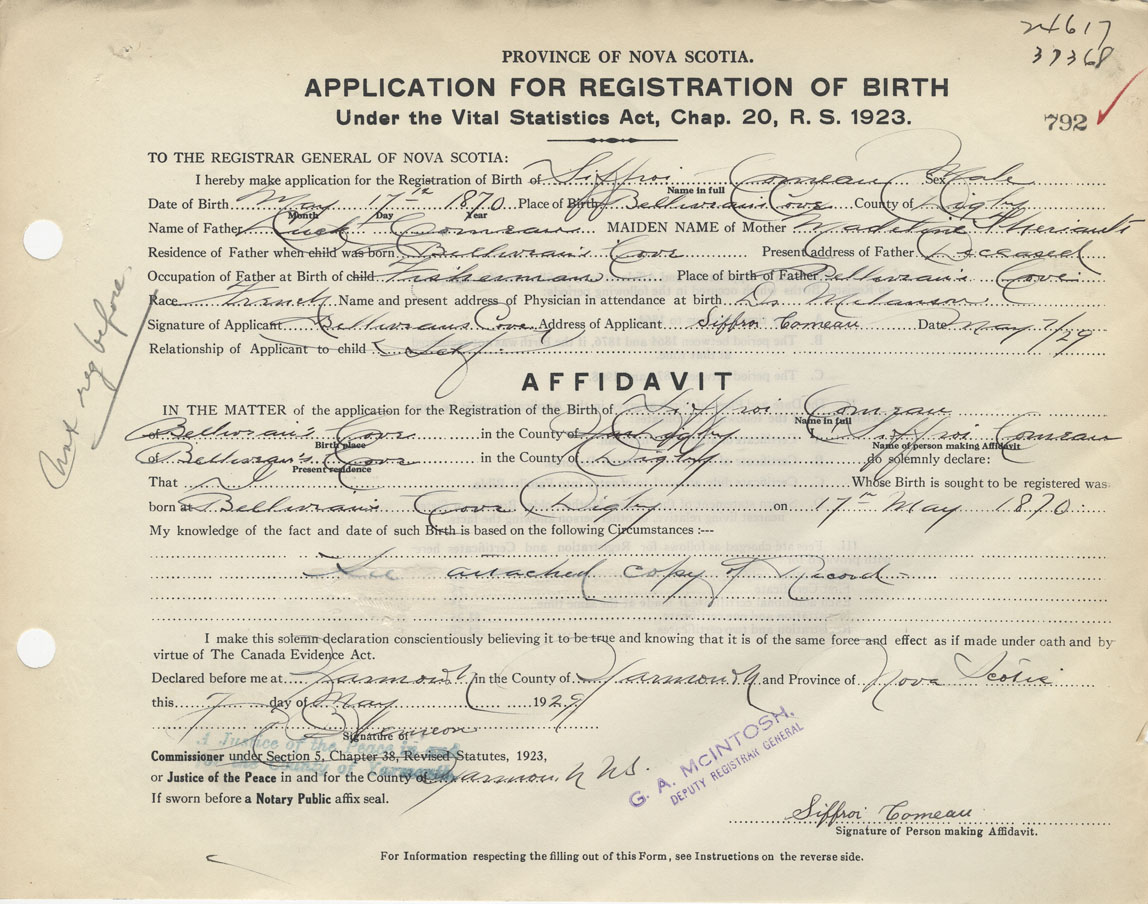 24617
37368
PROVINCE OF NOVA SCOTIA.
APPLICATION FOR REGISTRATION OF BIRTH
Under the Vital Statistics Act, Chap. 20, R. S. 1923.
792
TO THE REGISTRAR GENERAL OF NOVA SCOTIA:
I hereby make application for the Registration of Birth of Siffroi Comeau Sex Male
Name in full
Date of Birth May 17th 1870 Place of Birth Belliveau's Cove County of Digby
Month Day Year
Name of Father Comeau MAIDEN NAME of Mother Madeline Theriault
Residence of Father when child was born Belliveau's Cove Present address of Father Deceased
Occupation of Father at Birth of child Fisherman Place of birth of Father Belliveau's Cove
Race French Name and present address of Physician in attendance at birth Dr Melanson
Signature of Applicant Belliveaus Cove Address of Applicant Siffroi Comeau Date May 7/29
Relationship of Applicant to child Self
Not reg before
AFFIDAVIT
IN THE MATTER of the application for the Registration of the Birth of Siffroi Comeau
Name in full
of Belliveau's Cove in the County of Digby I, Siffroi Comeau
Birth place Name of person making Affidavit
of Belliveau's Cove in the County of Digby do solemnly declare:
Present residence
That I Whose Birth is sought to be registered was
born at Belliveau's Cove, Digby on 17th May 1870
My knowledge of the fact and date of such Birth is based on the following Circumstances :---
See attached copy of Record
I make this solemn declaration conscientiously believing it to be true and knowing that it is of the same force and effect as if made under oath and by
virtue of The Canada Evidence Act.
Declared before me at Yarmouth in the County of Yarmouth and Province of Nova Scotia
this 7 day of May 1929
Signature of
A Justice of the Peace in and
for the County of Yarmouth
Commissioner under Section 5, Chapter 38, Revised Statutes, 1923,
or Justice of the Peace in and for the County of Yarmouth N.S.
If sworn before a Notary Public affix seal.
G. A. McINTOSH,
DEPUTY REGISTRAR GENERAL
Siffroi Comeau
Signature of Person making Affidavit.
For Information respecting the filling out of this Form, see Instructions on the reverse side.